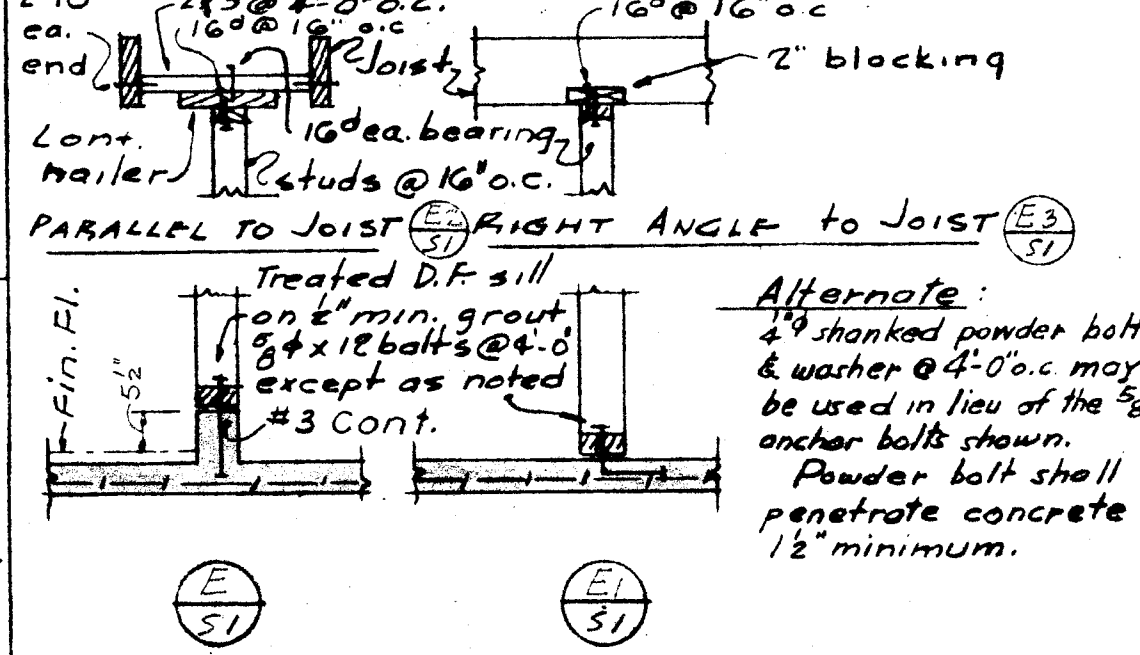 ea.
end
2x3 @ 4'-0" o.c.
16d @ 16" o.c
Joist
Cont.
nailer
16d ea. bearing
studs @ 16" o.c.
16d @ 16" o.c
2" blocking
PARALLEL TO JOIST E2/S1
RIGHT ANGLE to JOIST E3/S1
Fin. Fl.
5½"
Treated D.F. sill
on ½" min. grout
⅝ ϕ x 12 bolts @ 4'-0"
except as noted
#3 Cont.
Alternate :
¼"ϕ shanked powder bolt
& washer @ 4'-0" o.c. may
be used in lieu of the ⅝
anchor bolts shown.
Powder bolt shall
penetrate concrete
1½" minimum.
E
S1
E1
S1